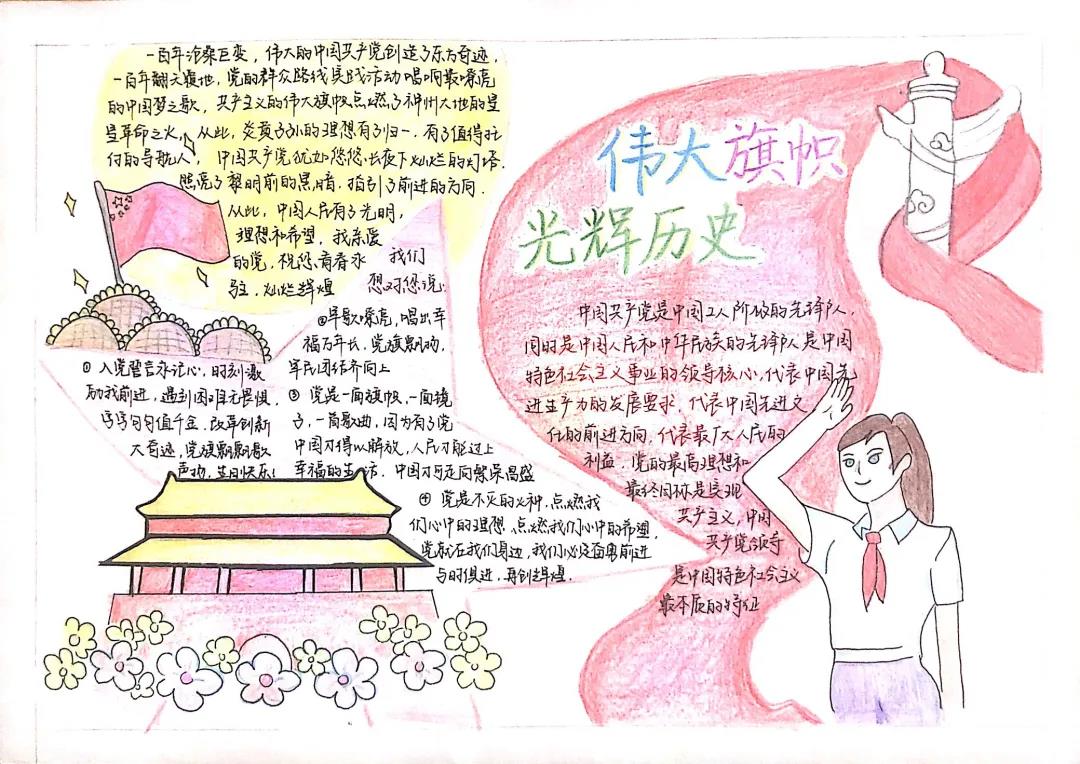 一百年沧桑巨变，伟大的中国共产党创造了东方奇迹，
一百年翻天覆地，党的群众路线实践活动唱响最嘹亮
的中国梦之歌，共产主义的伟大旗帜点燃了神州大地的星
星革命之火，从此，炎黄子孙的理想有了归一，有了值得托
付的导航人，中国共产党犹如悠悠长夜下灿烂的灯塔，
照亮了黎明前的黑暗，指引了前进的方向．
从此，中国人民有了光明，
理想和希望，我亲爱
的党，祝您青春永
驻．灿烂辉煌
我们
想对您说：
①入党誓言永记心，时刻激
励我前进，遇到困阻无畏惧，
字字句句值千金．改革创新
大奇迹，党旗飘飘歌
声动，生日快乐！
②军歌嘹亮，唱出幸
福万年长，党旗飘动，
军民团结齐向上
③党是一面旗帜，一面镜
子，一首歌曲，因为有了党
中国才得以解放，人民才能过上
幸福的生活．中国才能走向繁荣昌盛
④党是不灭的火种，点燃我
们心中的理想，点燃我们心中的希望，
党就在我们身边，我们必须奋勇前进
与时俱进，再创辉煌．
伟大旗帜
光辉历史
中国共产党是中国工人阶级的先锋队，
同时是中国人民和中华民族的先锋队是中国
特色社会主义事业的领导核心，代表中国先
进生产力的发展要求，代表中国先进文
化的前进方向，代表最广大人民的
利益．党的最高理想和
最终目标是实现
共产主义，中国
共产党领导
是中国特色社会主义
最本质的特征